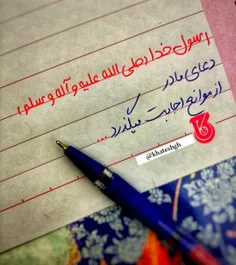 رسول خدا (صلی الله علیه وآله وسلم)
دعای مادر
از موانع اجابت میگذرد...
@khateshgh